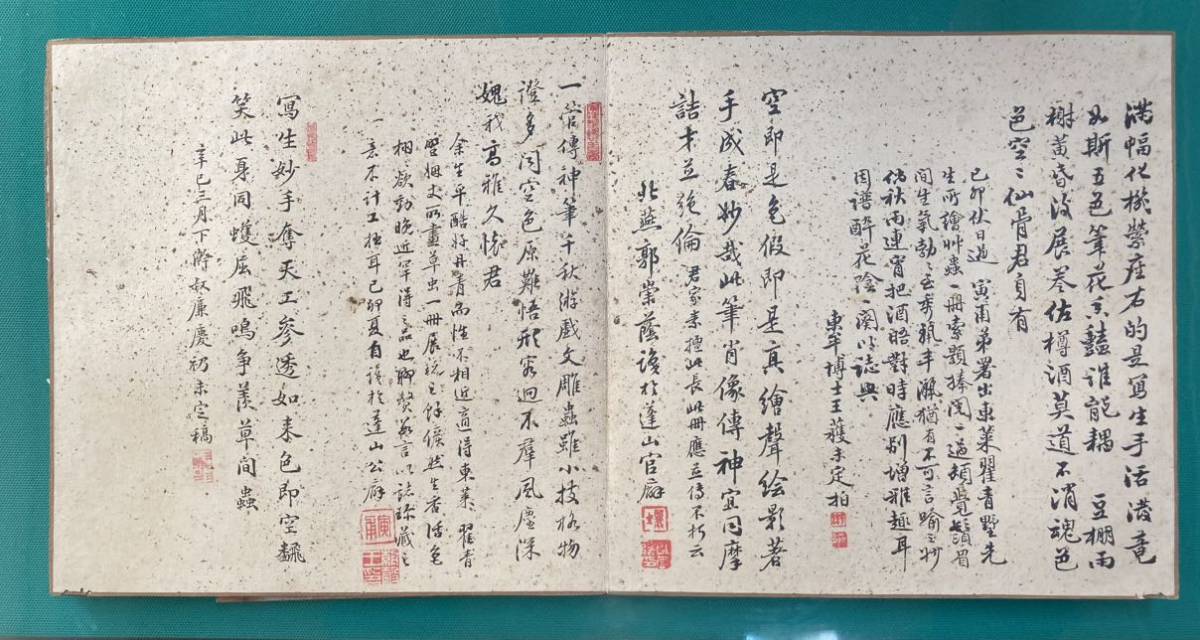 滿幅化機縈座右的是寫生手活潑竟
如斯五色筆花多豔誰能耦　豆棚雨
榭黃昏後展卷佐樽酒莫道不消魂色
色空空仙骨君自有
己卯伏日過　寅甫弟署出東萊翟青墅先
生所繪艸蟲一冊索題捧閱一過頓覺鬚眉
間生氣勃勃至秀骩丰瀜猶有不可言喻之妙
俏秋雨連宵把酒晤對時應別增雅趣耳
因譜醉花陰一闋以誌與
東牟博士王蔭未定拍
空即是色假即是真繪聲繪影著
手成春妙哉此筆肖像傳神宜同摩
詰才並絕倫君家素擅此長此冊應並傳不朽云
北燕郭崇蔭識於蓬山官廨
一管傳神筆千秋游戲文雕蟲雖小技格物
證多聞空色原難悟形容迥不羣風塵深
媿我高雅久懷君
余生平酷好丹青而性不相近適得東萊　翟青
墅姻丈所畫草虫一冊展玩之餘儼然生香活色
栩栩欲動晚近罕得之品也聊贅數言以誌珍藏之
意不計工拙耳己卯夏自識於蓬山公廨
寫生妙手奪天工參透如來色即空飜
笑此身同蠖屈飛鳴爭羨草間蟲
辛巳三月下澣叔廉慶礽未定稿